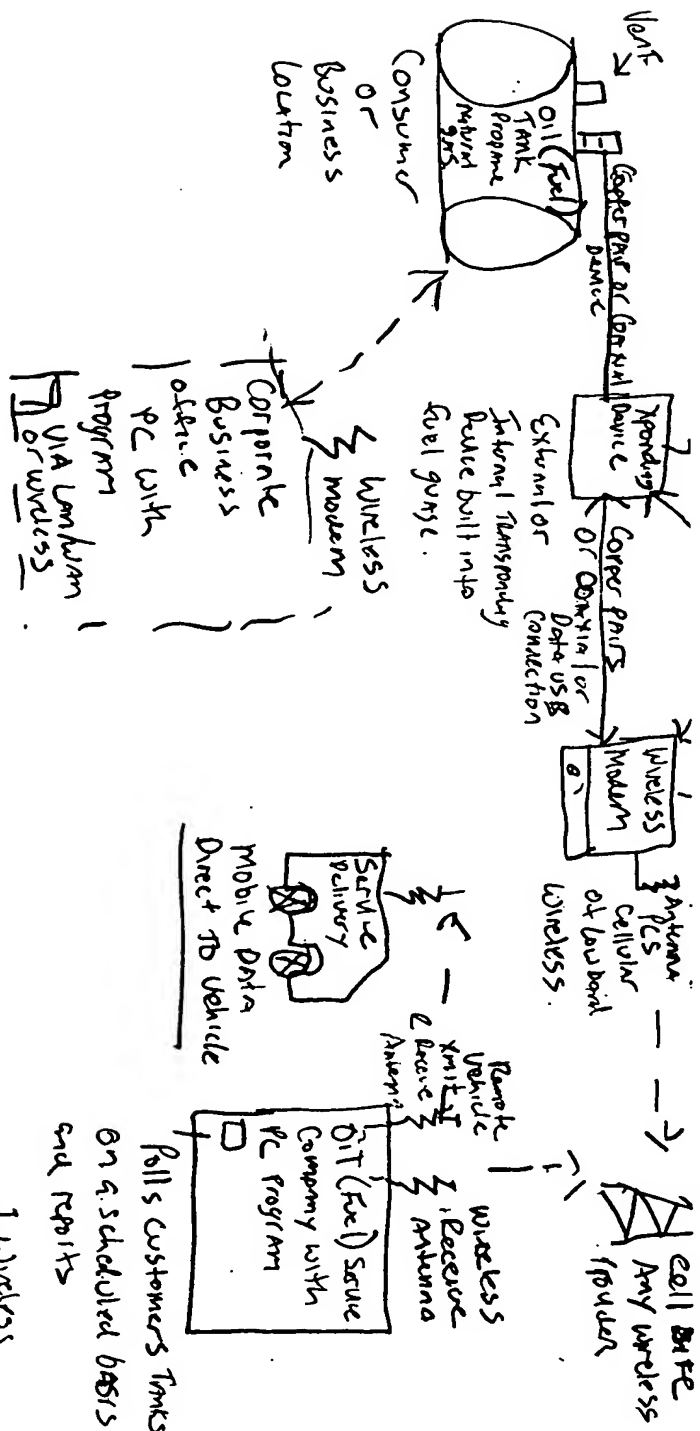 Vent
Oil (Fuel)
Tank
Propane
natural
gas
Consumer
or
Business
Location
Copper pair or Coaxial
Device
Xponding
Device
External or
Internal Transponding
Device built into
fuel guage.
Copper pairs
or coaxial or
Data USB
Connection
Wireless
Modem
Antenna
PCS
cellular
or low band
wireless.
Cell
Any wireless
Provider
Wireless
modem
Corporate
Business
office
PC with
Program
VIA Lan/WAN
or wireless
Service
Delivery
Mobile Data
Direct To Vehicle
Remote
Vehicle
Xmit
& Receive
Antenna
Wireless
Receive
Antenna
Oil (Fuel)
Company with
PC Program
Polls customers Tanks
on a scheduled basis
and reports
Wireless